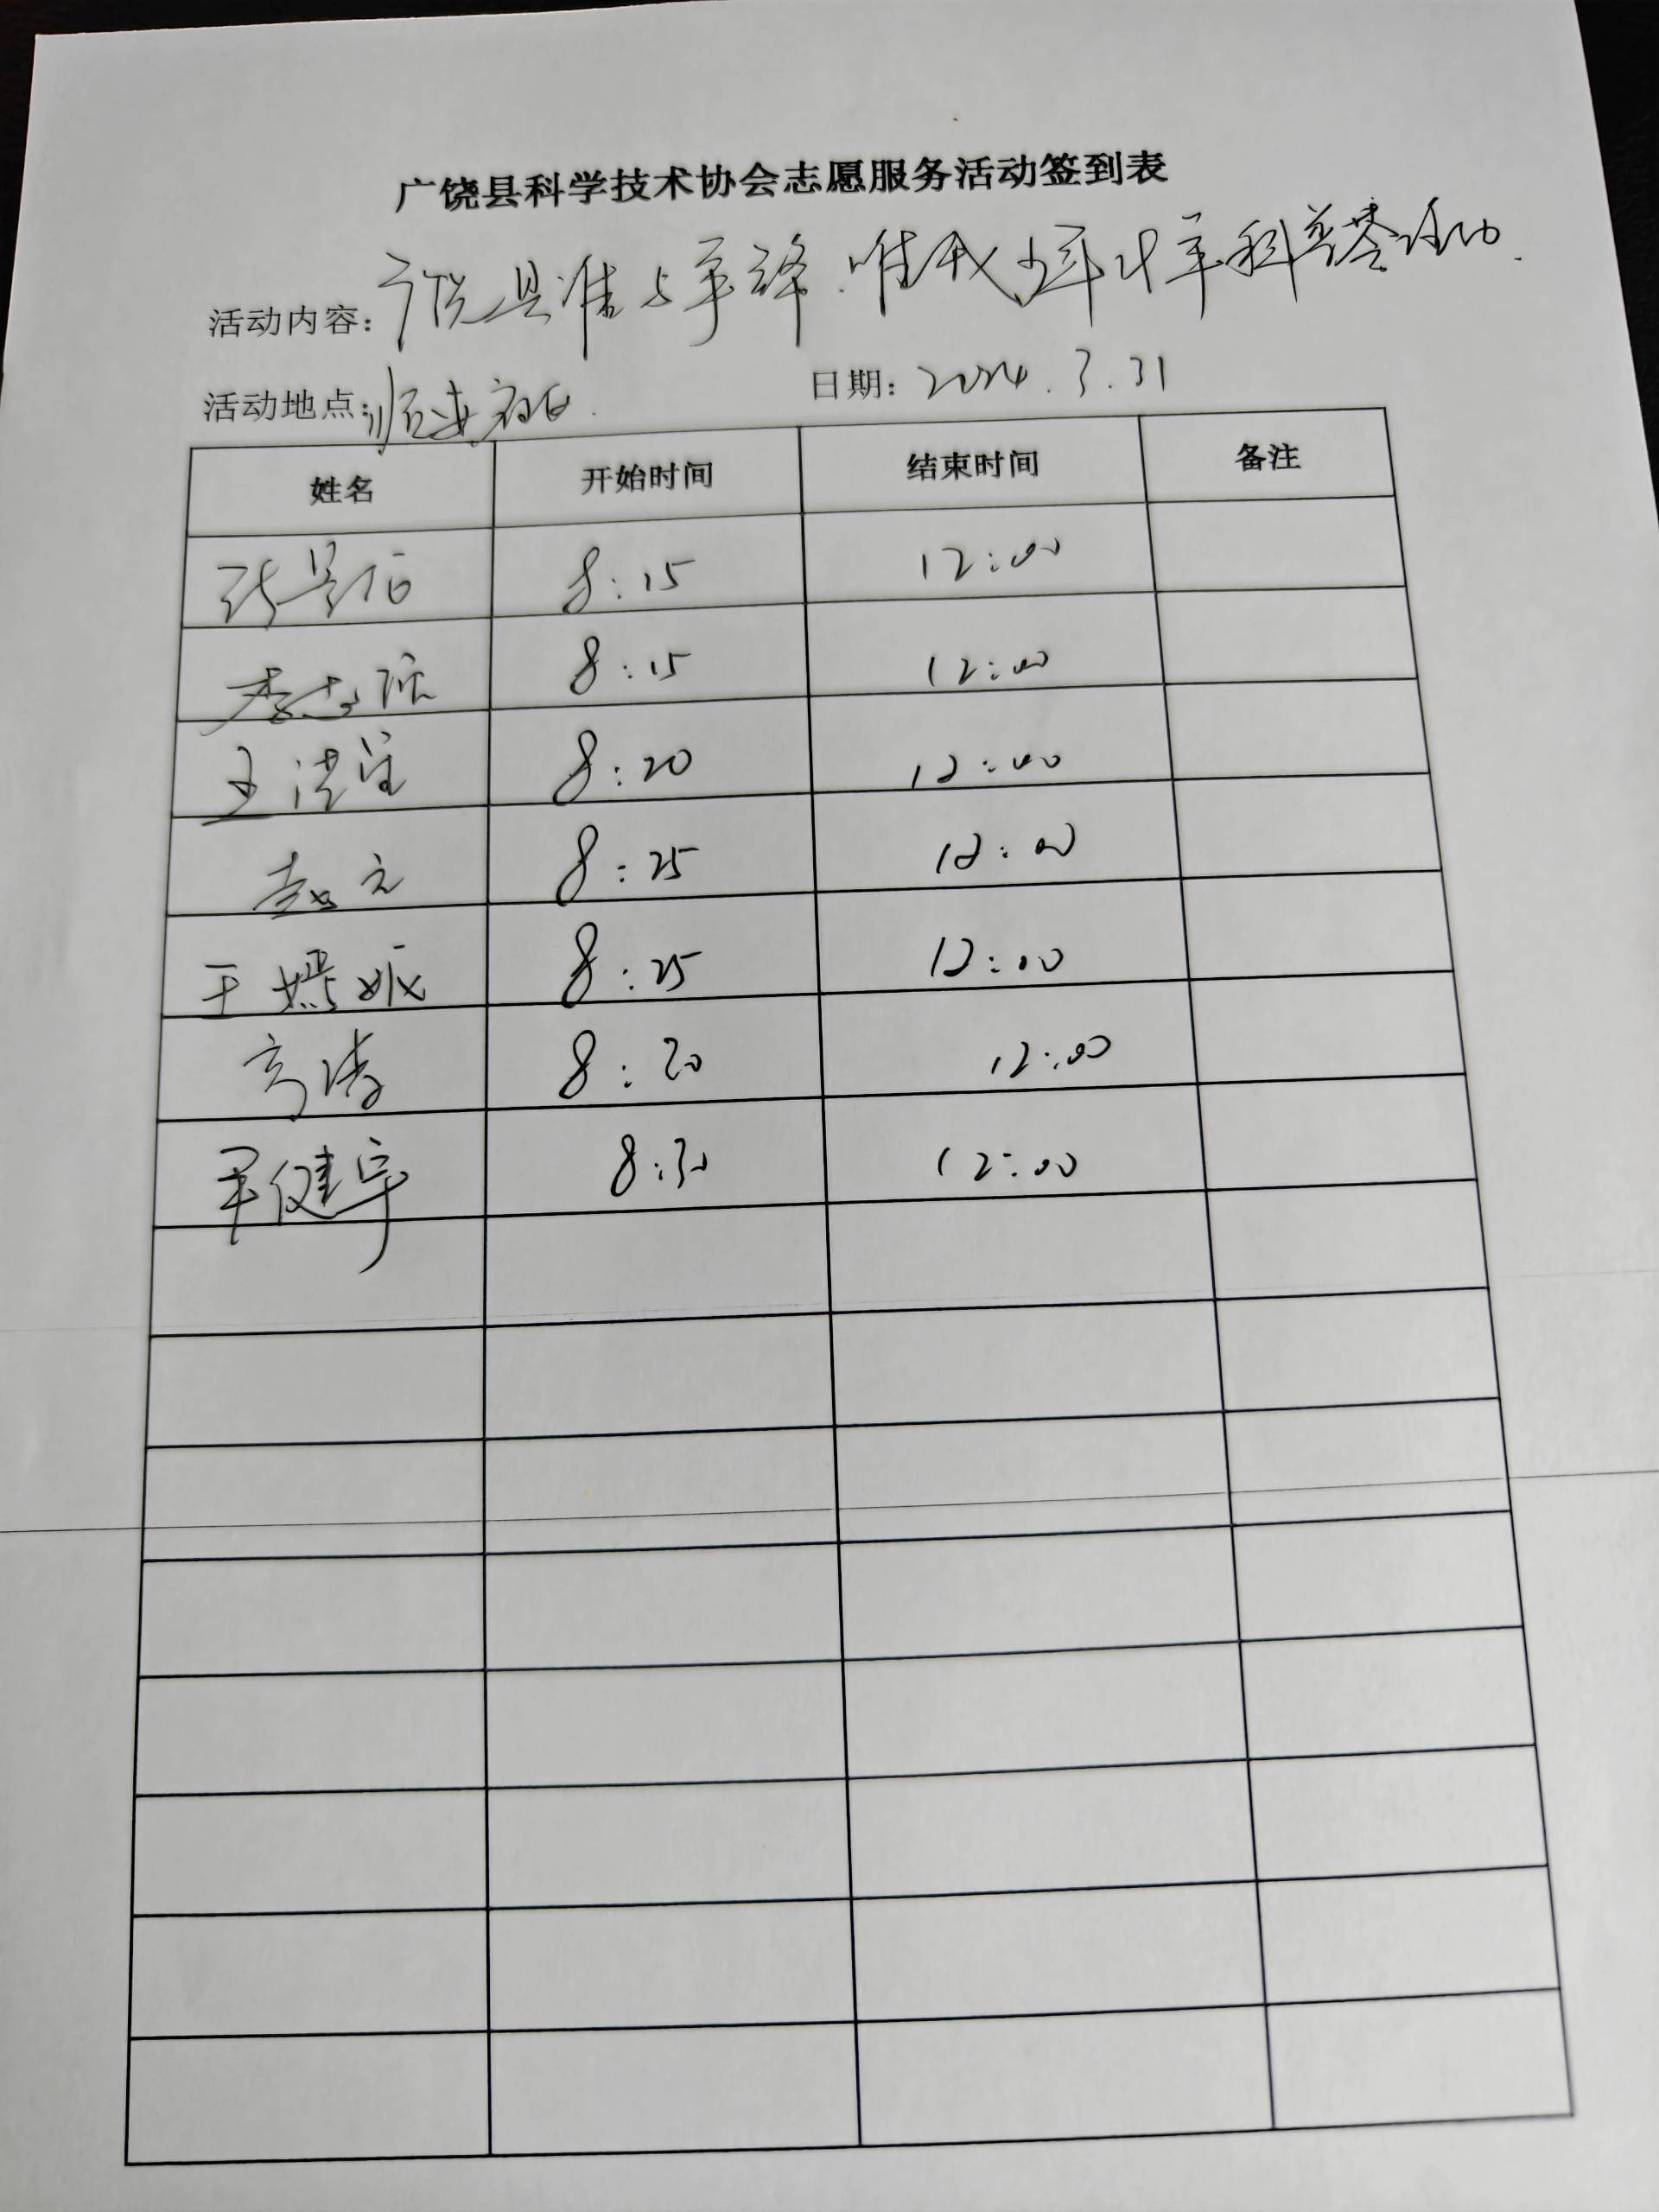 广饶县科学技术协会志愿服务活动签到表
活动内容: 广饶县谁与争锋.唯我少年 科普 活动.
活动地点: 日期: 2024.3.31
姓名 开始时间 结束时间 备注
8:15 12:00
8:15 12:00
王洪宝 8:20 12:00
赵元 8:25 12:00
王嫣妮 8:25 12:00
8:20 12:00
健宇 8:30 12:00